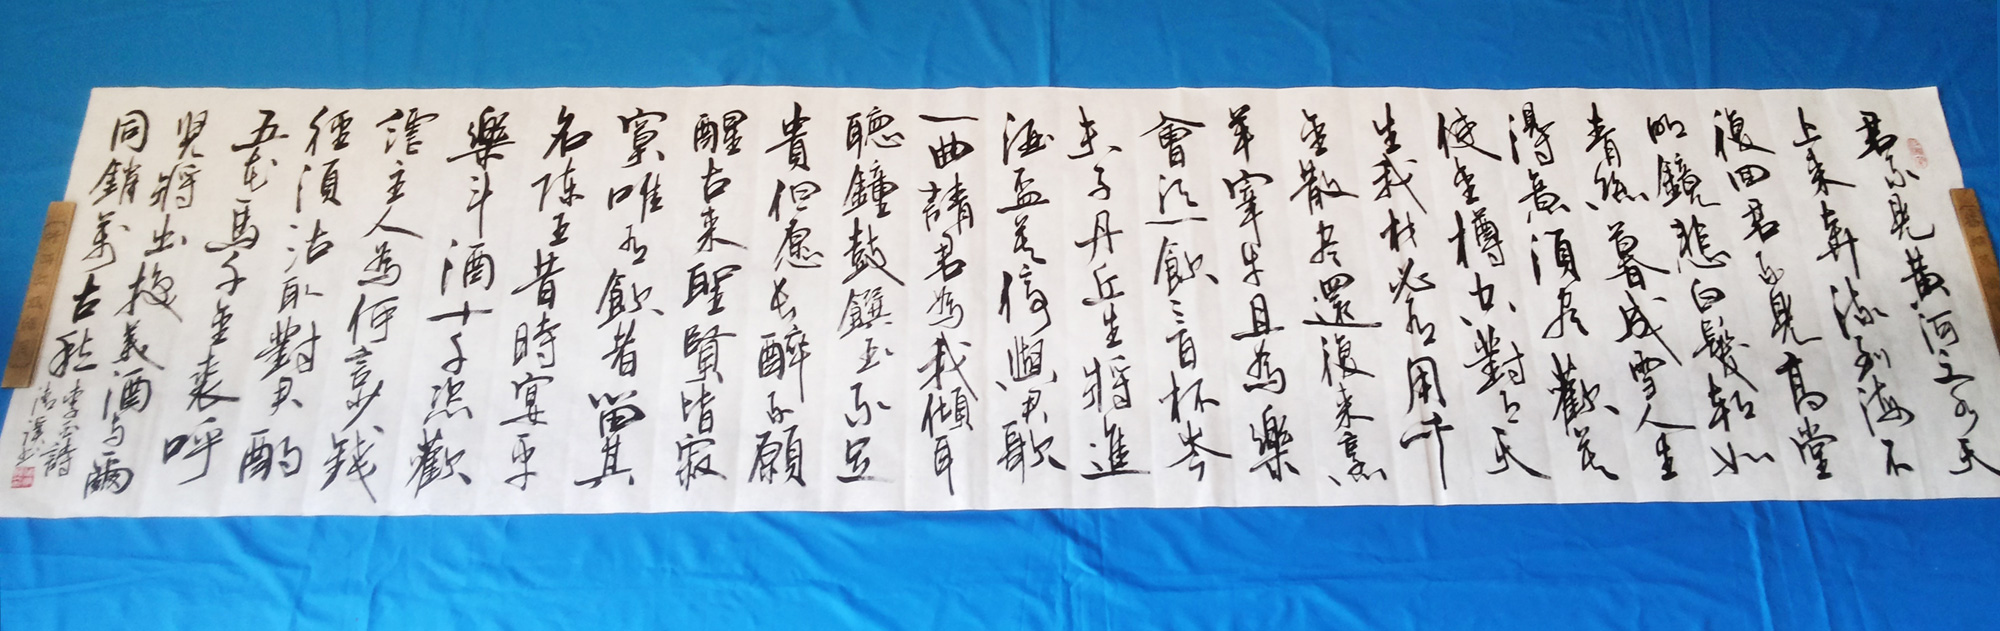 君不見黃河之水天
上來奔流到海不
復回君不見高堂
明鏡悲白髮朝如
青絲暮成雪人生
得意須盡歡莫
使金樽空對月天
生我材必有用千
金散盡還復來烹
羊宰牛且為樂
會須一飲三百杯岑
夫子丹丘生將進
酒盃莫停與君歌
一曲請君為我傾耳
聽鐘鼓饌玉不足
貴但愿長醉不願
醒古來聖賢皆寂
寞唯有飲者留其
名陳王昔時宴平
樂斗酒十千恣歡
謔主人為何言少錢
徑須沽取對君酌
五花馬千金裘呼
兒將出換美酒與爾
同銷萬古愁
李白詩